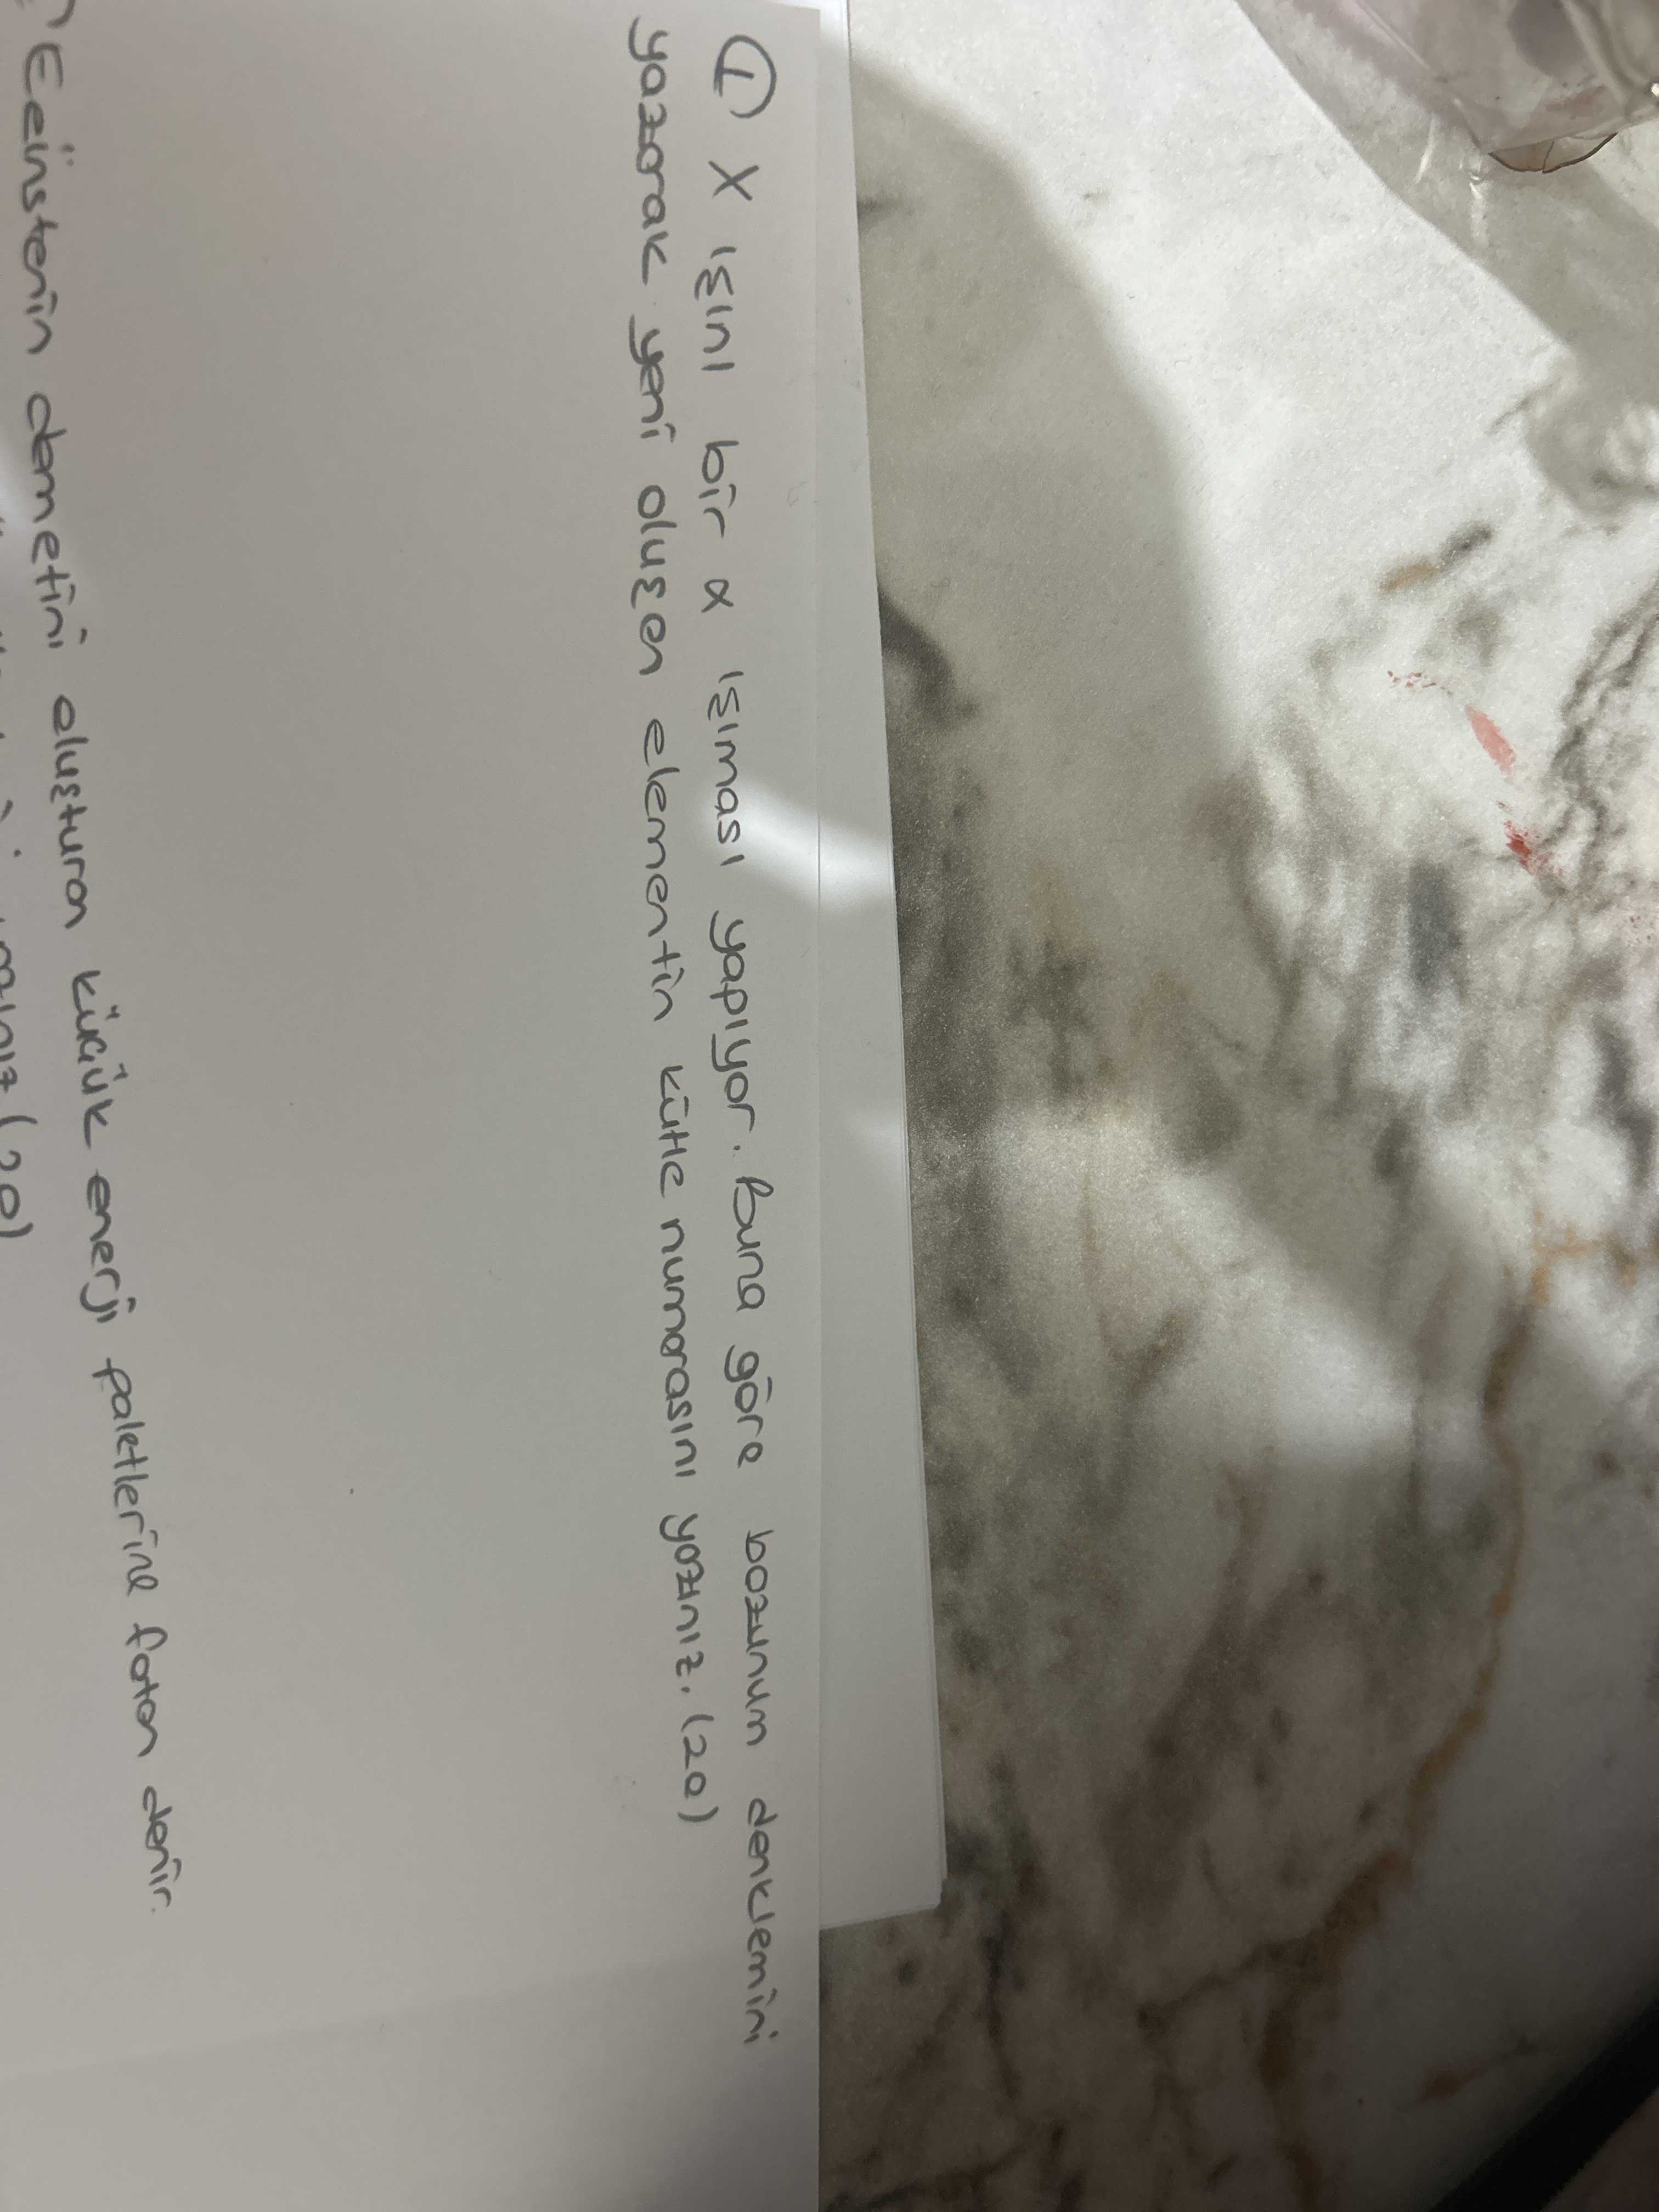 ① X ışını bir α ışıması yapıyor. Buna göre bozunum denklemini
yazarak yeni oluşan elementin kütle numarasını yazınız. (20)
Eeinstenin demetini oluşturan küçük enerji paletlerine foton denir.
(20)